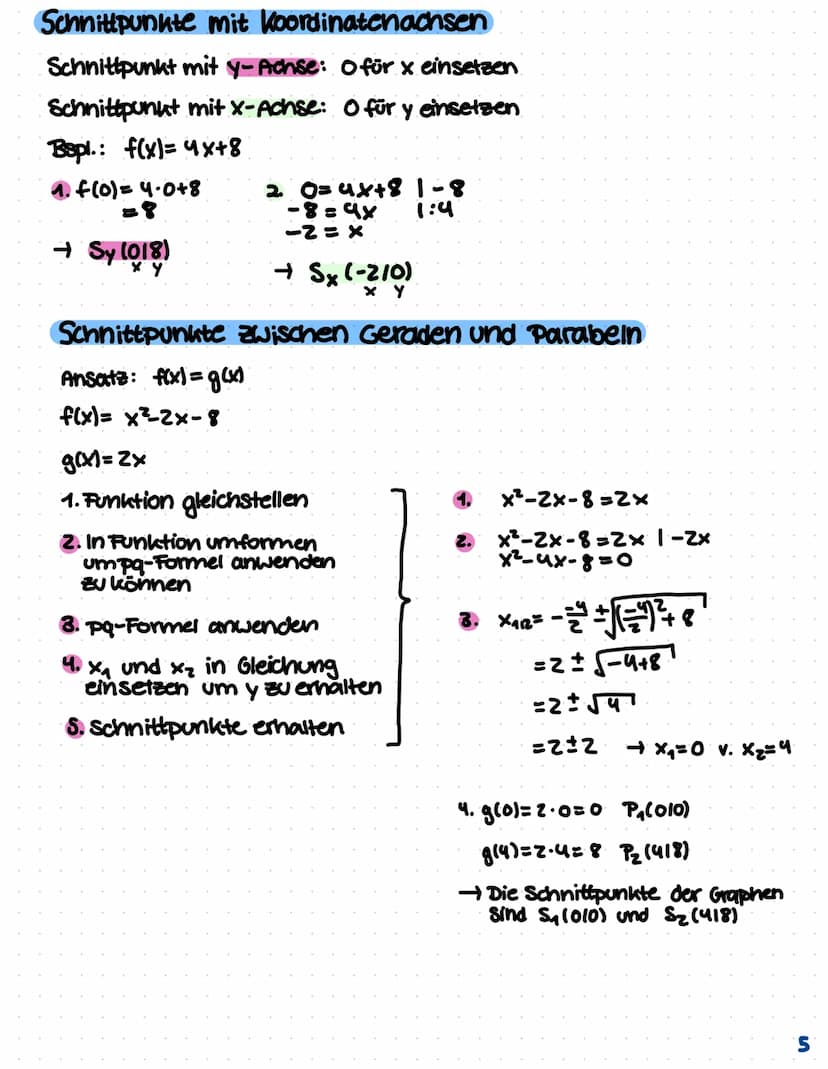 Schnittpunkte mit Koordinatenachsen
Schnittpunkt mit y-Achse: 0 für x einsetzen
Schnittpunkt mit x-Achse: 0 für y einsetzen
Bspl.: f(x)= 4x+8
1. f(0)= 4·0+8
= 8
→ Sy (0|8)
x y
2. 0=4x+8 |-8
-8=4x |:4
-2=x
→ Sx (-2|0)
x y
Schnittpunkte zwischen Geraden und Parabeln
Ansatz: f(x)=g(x)
f(x)= x²-2x-8
g(x)=2x
1. Funktion gleichstellen
2. In Funktion umformen
um pq-Formel anwenden
zu können
3. pq-Formel anwenden
4. x₁ und x₂ in Gleichung
einsetzen um y zu erhalten
5. Schnittpunkte erhalten
1. x²-2x-8=2x
2. x²-2x-8=2x |-2x
x²-4x-8=0
3. x₁/₂= -\frac{-4}{2} ± √((\frac{-4}{2})²+8)
=2±√(-4+8)
=2±√4
=2±2 → x₁=0 v. x₂=4
4. g(0)=2·0=0 P₁(0|0)
g(4)=2·4=8 P₂(4|8)
→ Die Schnittpunkte der Graphen
sind S₁(0|0) und S₂(4|8)
5